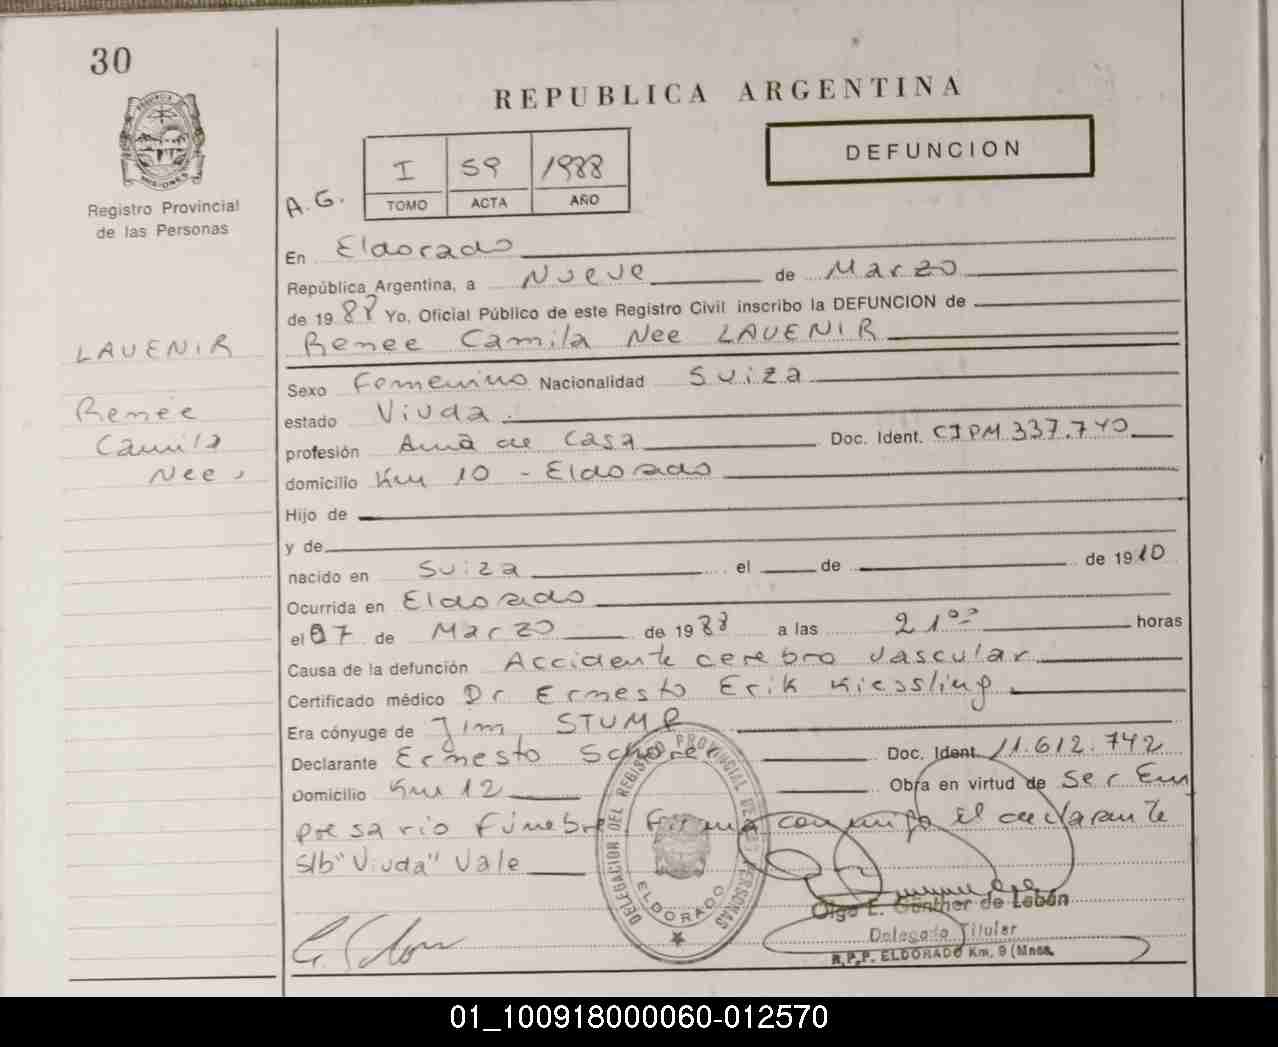 30
REPUBLICA ARGENTINA
DEFUNCION
I 59 1988
TOMO ACTA AÑO
A.G.
Registro Provincial
de las Personas
LAVENIR
Renée
Camila
Nee.
En Eldorado
República Argentina, a Nueve de Marzo
de 1988 Yo, Oficial Público de este Registro Civil inscribo la DEFUNCION de
Renee Camila Nee LAVENIR
Sexo Femenino Nacionalidad Suiza
estado Viuda.
profesión Ama de Casa Doc. Ident. CIPM.337.740
domicilio Km 10 - Eldorado
Hijo de
y de
nacido en Suiza el de de 1910
Ocurrida en Eldorado
el 07 de Marzo de 1988 a las 21⁰⁰ horas
Causa de la defunción Accidente cerebro vascular
Certificado médico Dr Ernesto Erik Kiessling
Era cónyuge de Jim STUMP
Declarante Ernesto Schorer Doc. Ident. 11.612.742
Domicilio Km 12 Obra en virtud de ser Em
presario Fúnebre Firma conmigo el declarante
S/b "Viuda" Vale
DELEGACION DEL REGISTRO PROVINCIAL DE LAS PERSONAS
ELDORADO
Olga E. Günther de Lebán
Delegado Titular
R.P.P. ELDORADO Km. 9 (Mnes.
01_100918000060-012570